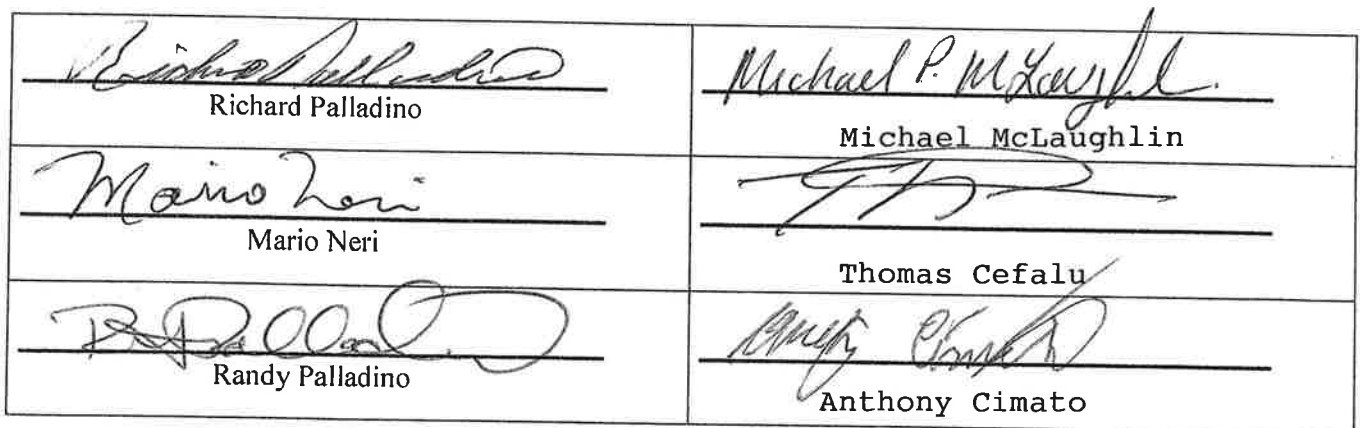 Richard Palladino
Michael P. McLaughlin
Richard Palladino
Michael McLaughlin
Mario Neri
Mario Neri
Thomas Cefalu
Randy Palladino
Anthony Cimato